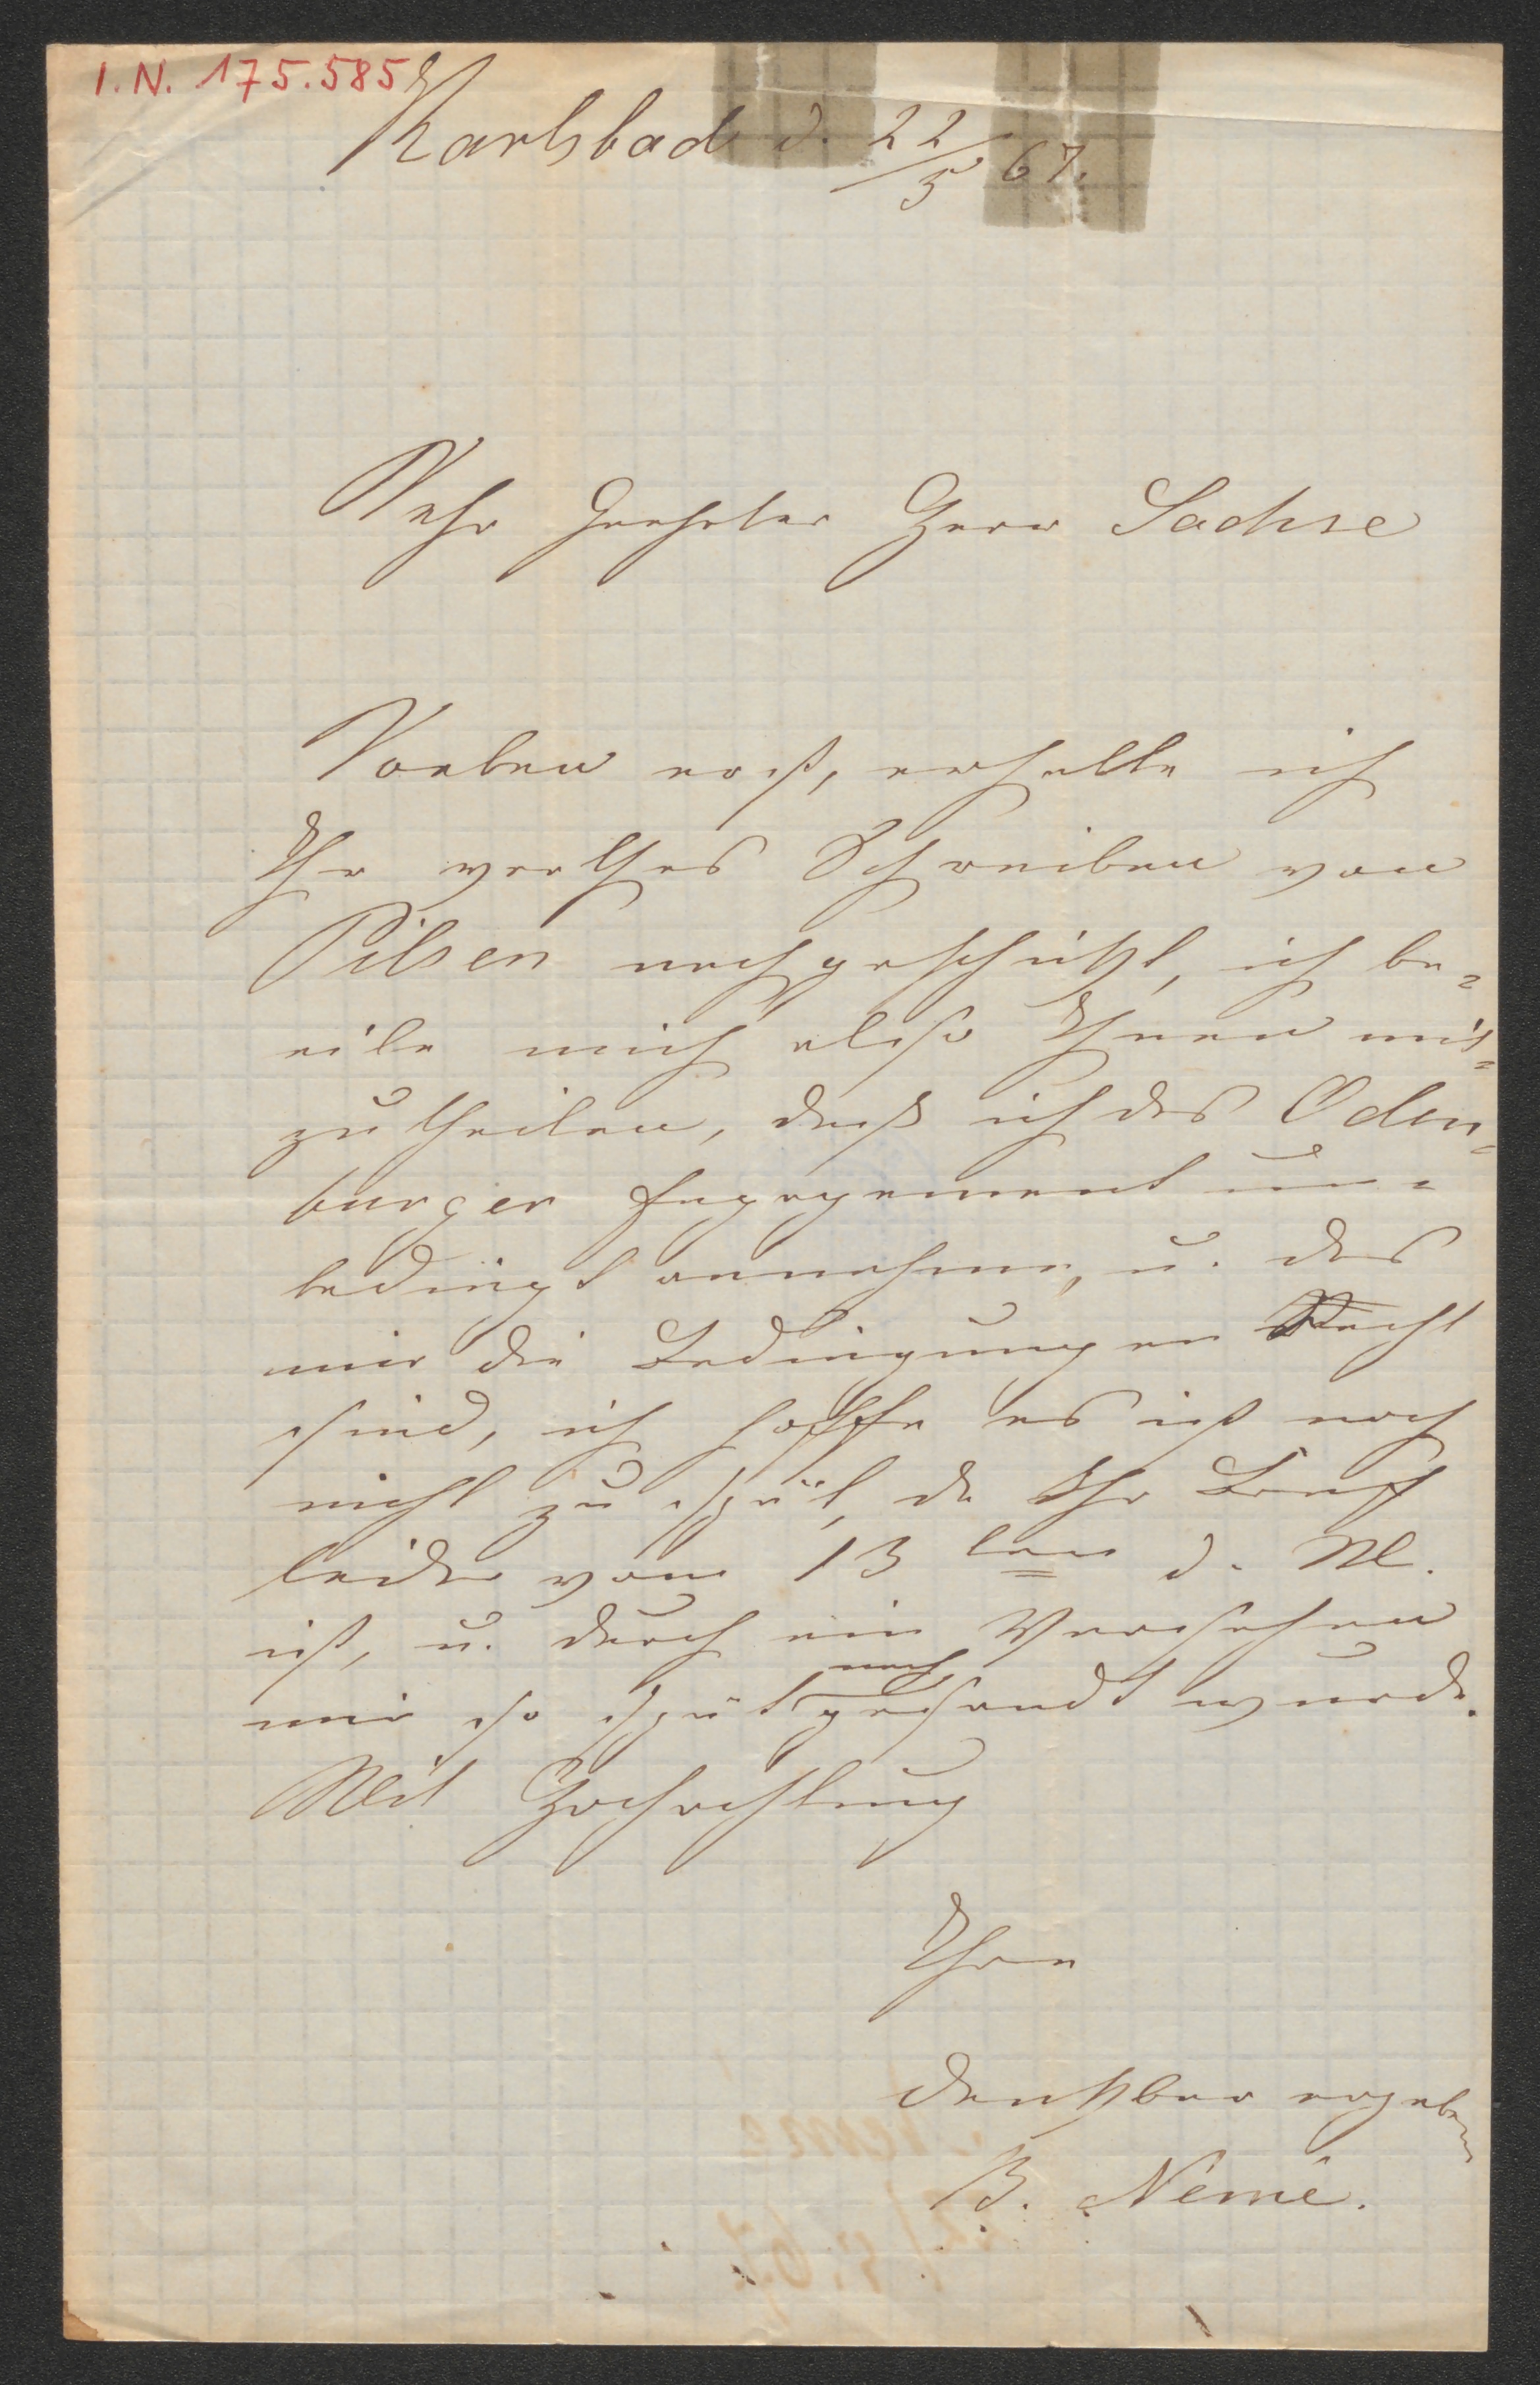 I.N. 175.585
Karlsbad d. 22/5 67.
Sehr Geehrter Herr Sachse
Soeben erst, erhalte ich
Ihr werthes Schreiben von
Pilsen nachgeschickt, ich be=
eile mich also Ihnen mit=
zutheilen, daß ich das Oden=
burger Engagement un=
bedingt annehme, u. das
mir die Bedingungen Recht
sind, ich hoffe es ist noch
nicht zu spät, da Ihr Brief
leider vom 13 ten d. M.
ist, u. durch ein Versehen
nach
mir so spät gesandt wurde.
Mit Hochachtung
Ihre
dankbar ergeben
B. Nemé.